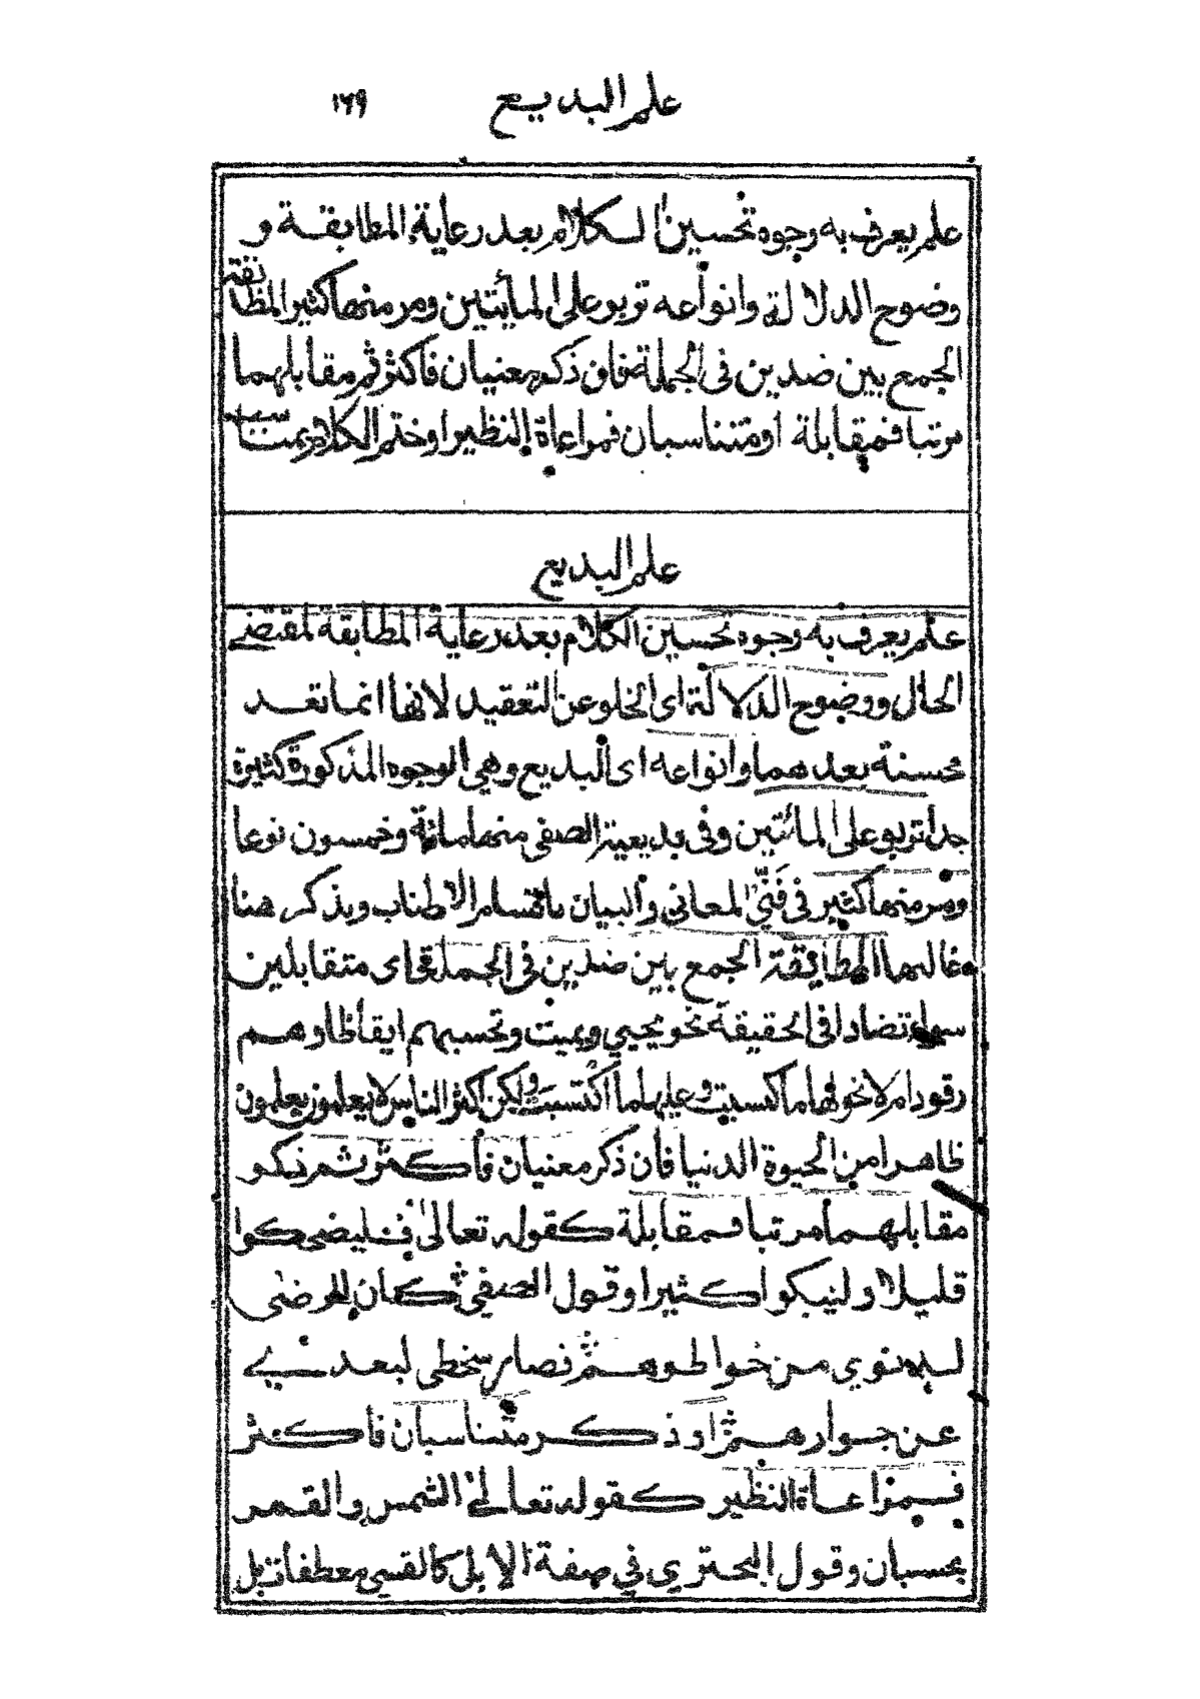 علم البديع ١٦٩
علم يعرف به وجوه تحسين الكلام بعد رعاية المطابقة و
وضوح الدلالة وانواعه تربو على المأيتين ومر منها كثير المطابقة
الجمع بين ضدين فى الجملة فان ذكر معنيان فاكثر ثم مقابلهما
مرتبا فمقابلة او متناسبان فمراعاة النظير اوختم الكلام بمتناسب
علم البديع
علم يعرف به وجوه تحسين الكلام بعد رعاية المطابقة لمقتضى
الحال ووضوح الدلالة اى الخلو عن التعقيد لانها انما تعد
محسنة بعدهما وانواعه اى البديع وهى الوجوه المذكورة كثيرة
جدا تربو على المائتين وفى بديعية الصفى منها مائة وخمسون نوعا
ومر منها كثير فى فنّي المعانى والبيان باقسام الاطناب ويذكر هنا
غالبها المطابقة الجمع بين ضدين فى الجملة اى متقابلين
سواء تضادا فى الحقيقة نحو يحيي ويميت وتحسبهم ايقاظا وهم
رقود ام لا نحو لها ما كسبت وعليها ما اكتسبت ولكن اكثر الناس لا يعلمون يعلمون
ظاهرا من الحيوة الدنيا فان ذكر معنيان فاكثر ثم ذكر
مقابلهما مرتبا فمقابلة كقوله تعالى فليضحكوا
قليلا وليبكوا كثيرا وقول الصفى كان الرضى
لدنوي من خواطرهم فصار سخطى لبعدي
عن جوارهم او ذكر متناسبان فاكثر
فمراعاة النظير كقوله تعالى الشمس والقمر
بحسبان وقول البحتري في صفة الابل كالقسى معطفات بل